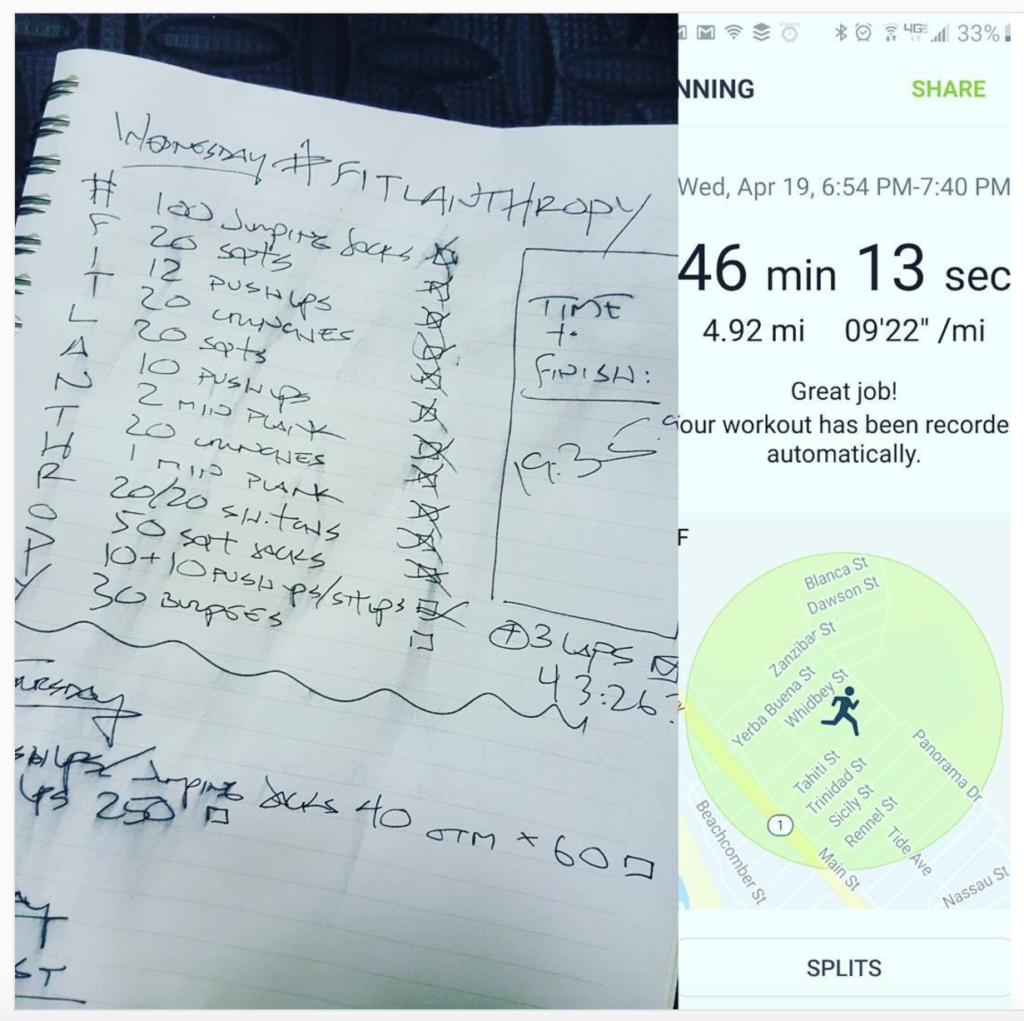 WEDNESDAY #FITLANTHROPY
# 100 JUMPING JACKS
F 20 SQTS
I 12 PUSHUPS
T 20 CRUNCHES
L 20 SQTS
A 10 PUSHUPS
N 2 MIN PLANK
T 20 CRUNCHES
H 1 MIN PLANK
R 20/20
O 50 SQT JACKS
P 10+10 PUSHUPS/SITUPS
Y 30 BURPEES
TIME
TO
FINISH:
+3 LAPS
43:26
JUMPING JACKS 40 OTM × 60
UPS 250
ST
4G
33%
NNING
SHARE
Wed, Apr 19, 6:54 PM-7:40 PM
46 min 13 sec
4.92 mi 09'22" /mi
Great job!
our workout has been recorde
automatically.
F
Blanca St
Dawson St
Zanzibar St
Yerba Buena St
Whidbey St
Tahiti St
Trinidad St
Sicily St
Rennel St
Panorama Dr
Tide Ave
1
Main St
Beachcomber St
Nassau St
SPLITS